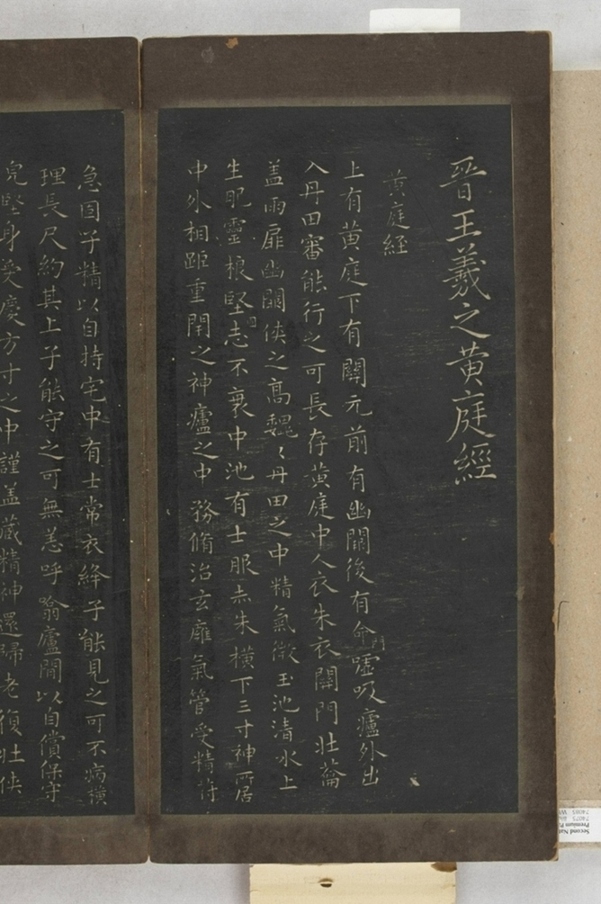 晉王羲之黄庭經
黄庭經
上有黄庭下有關元前有幽闕後有命門嘘吸廬外出
入丹田審能行之可長存黄庭中人衣朱衣關門壮籥
盖兩扉幽闕侠之高魏〻丹田之中精氣微玉池清水上
生肥靈根堅志不衰中池有士服赤朱横下三寸神所居
中外相距重閇之神廬之中務脩治玄廱氣管受精符
急固子精以自持宅中有士常衣絳子能見之可不病横
理長尺約其上子能守之可無恙呼翕廬間以自償保守
完堅身受慶方寸之中謹盖藏精神還歸老復壮侠
Second Nat
Premium P